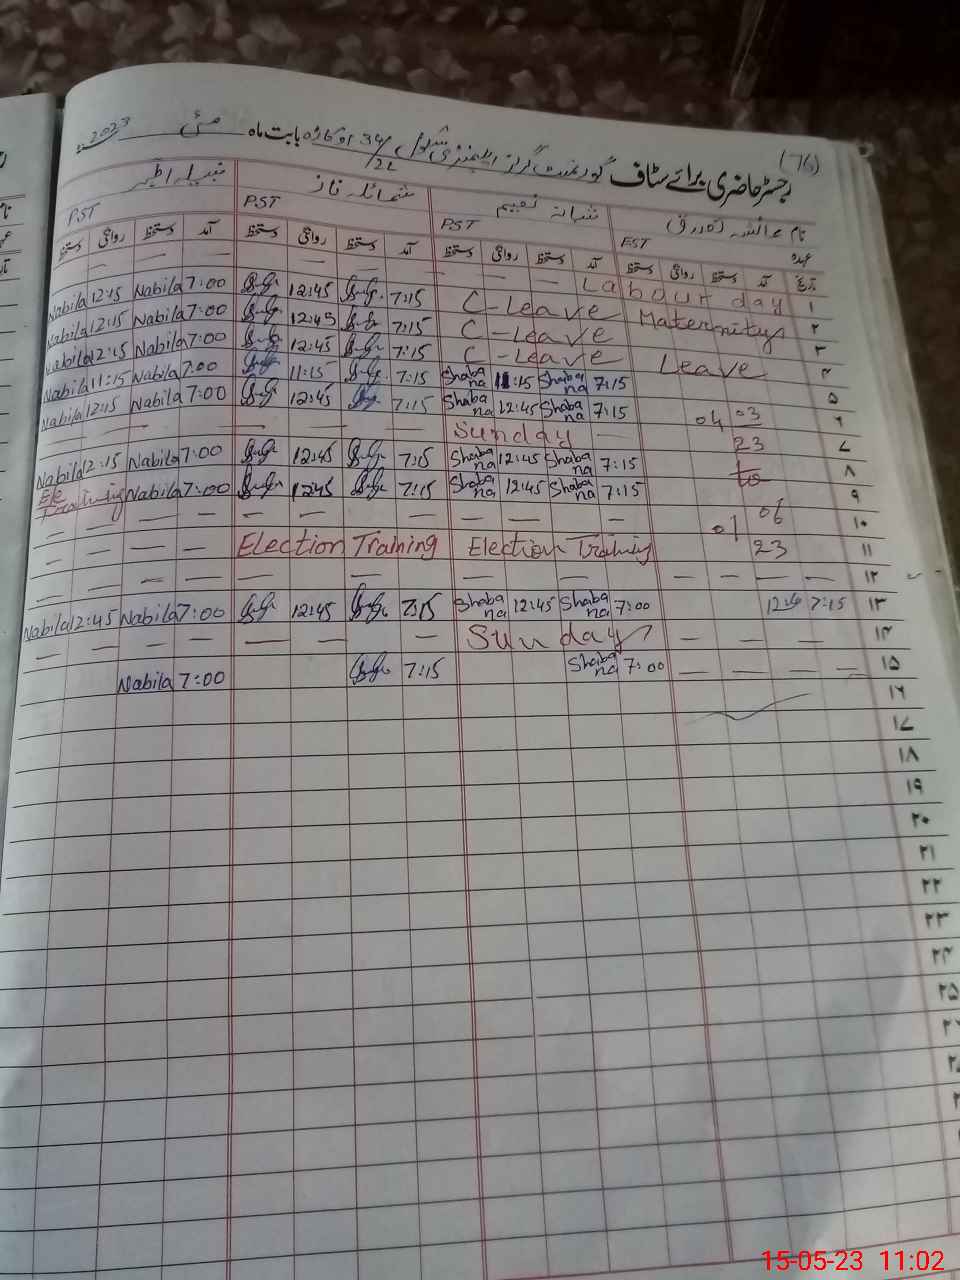 (76)
رجسٹر حاضری برائے سٹاف گورنمنٹ گرلز ایلیمنٹری سکول 34/2L اوکاڑہ بابت ماہ مئی 2023ء
نام عائشہ شبانہ نعیم شمائلہ ناز نبیلہ اظہر
عہدہ EST PST PST PST
تاریخ آمد دستخط روانگی دستخط آمد دستخط روانگی دستخط آمد دستخط روانگی دستخط آمد دستخط روانگی دستخط
۱ Labour day — — — — — —
۲ Maternity C-Leave 7:15 12:45 7:00 Nabila 12:15 Nabila
۳ C-Leave 7:15 12:45 7:00 Nabila 12:15 Nabila
۴ Leave C-Leave 7:15 12:45 7:00 Nabila 12:45 Nabila
۵ 7:15 Shabana 11:15 Shabana 7:15 11:15 7:00 Nabila 11:15 Nabila
۶ 04 03 7:15 Shabana 12:45 Shabana 7:15 12:45 7:00 Nabila 12:15 Nabila
۷ 23 Sunday — — — —
۸ to 7:15 Shabana 12:45 Shabana 7:15 12:45 7:00 Nabila 12:15 Nabila
۹ 7:15 Shabana 12:45 Shabana 7:15 12:45 7:00 Nabila Ele Training
۱۰ 01 06 — — — — — — — —
۱۱ 23 Election Training Election Training — — — —
۱۲ — — — — — — — —
۱۳ 7:15 7:00 Shabana 12:45 Shabana 7:15 12:45 7:00 Nabila 12:45 Nabila
۱۴ — — Sunday — — — — — —
۱۵ — — — 7:00 Shabana 7:15 7:00 Nabila
۱۶
۱۷
۱۸
۱۹
۲۰
۲۱
۲۲
۲۳
۲۴
۲۵
15-05-23 11:02